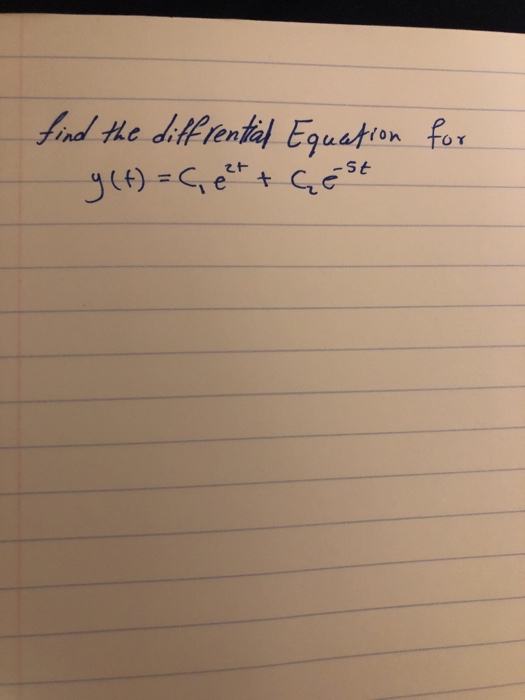 find the diffrential Equation for
y(t) = C₁ e²ᵗ + C₂ e⁻⁵ᵗ